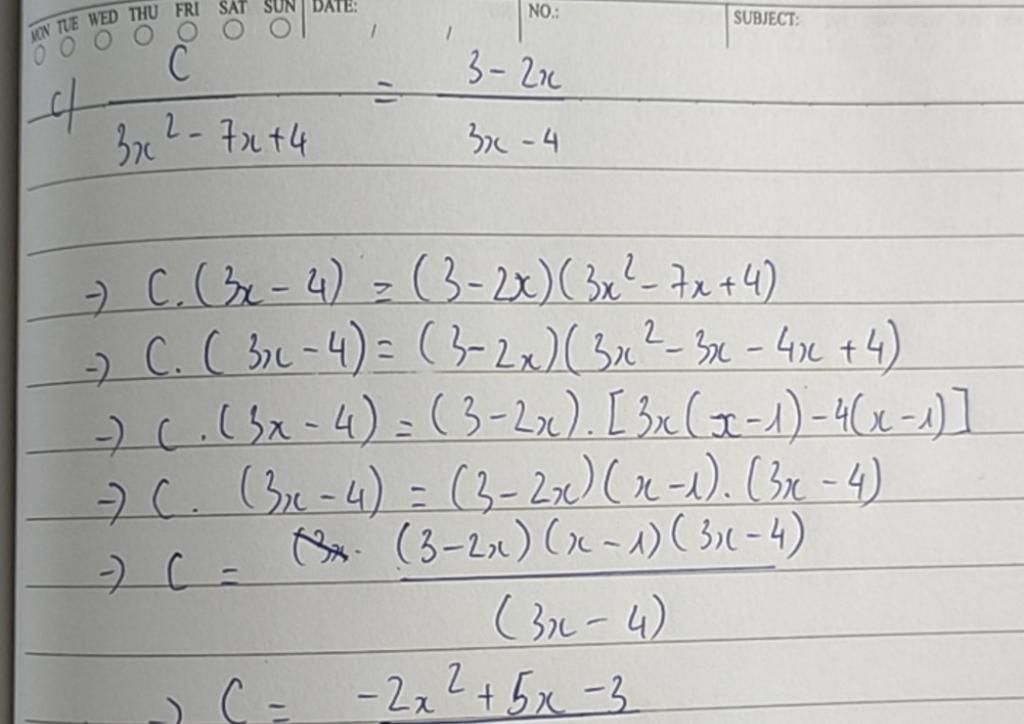 MON TUE WED THU FRI SAT SUN DATE: / / NO.: SUBJECT:
c/ C / (3x² - 7x + 4) = (3 - 2x) / (3x - 4)
→ C.(3x - 4) = (3 - 2x)(3x² - 7x + 4)
→ C.(3x - 4) = (3 - 2x)(3x² - 3x - 4x + 4)
→ C.(3x - 4) = (3 - 2x).[3x(x - 1) - 4(x - 1)]
→ C.(3x - 4) = (3 - 2x)(x - 1).(3x - 4)
→ C = (3 - 2x)(x - 1)(3x - 4) / (3x - 4)
→ C = -2x² + 5x - 3